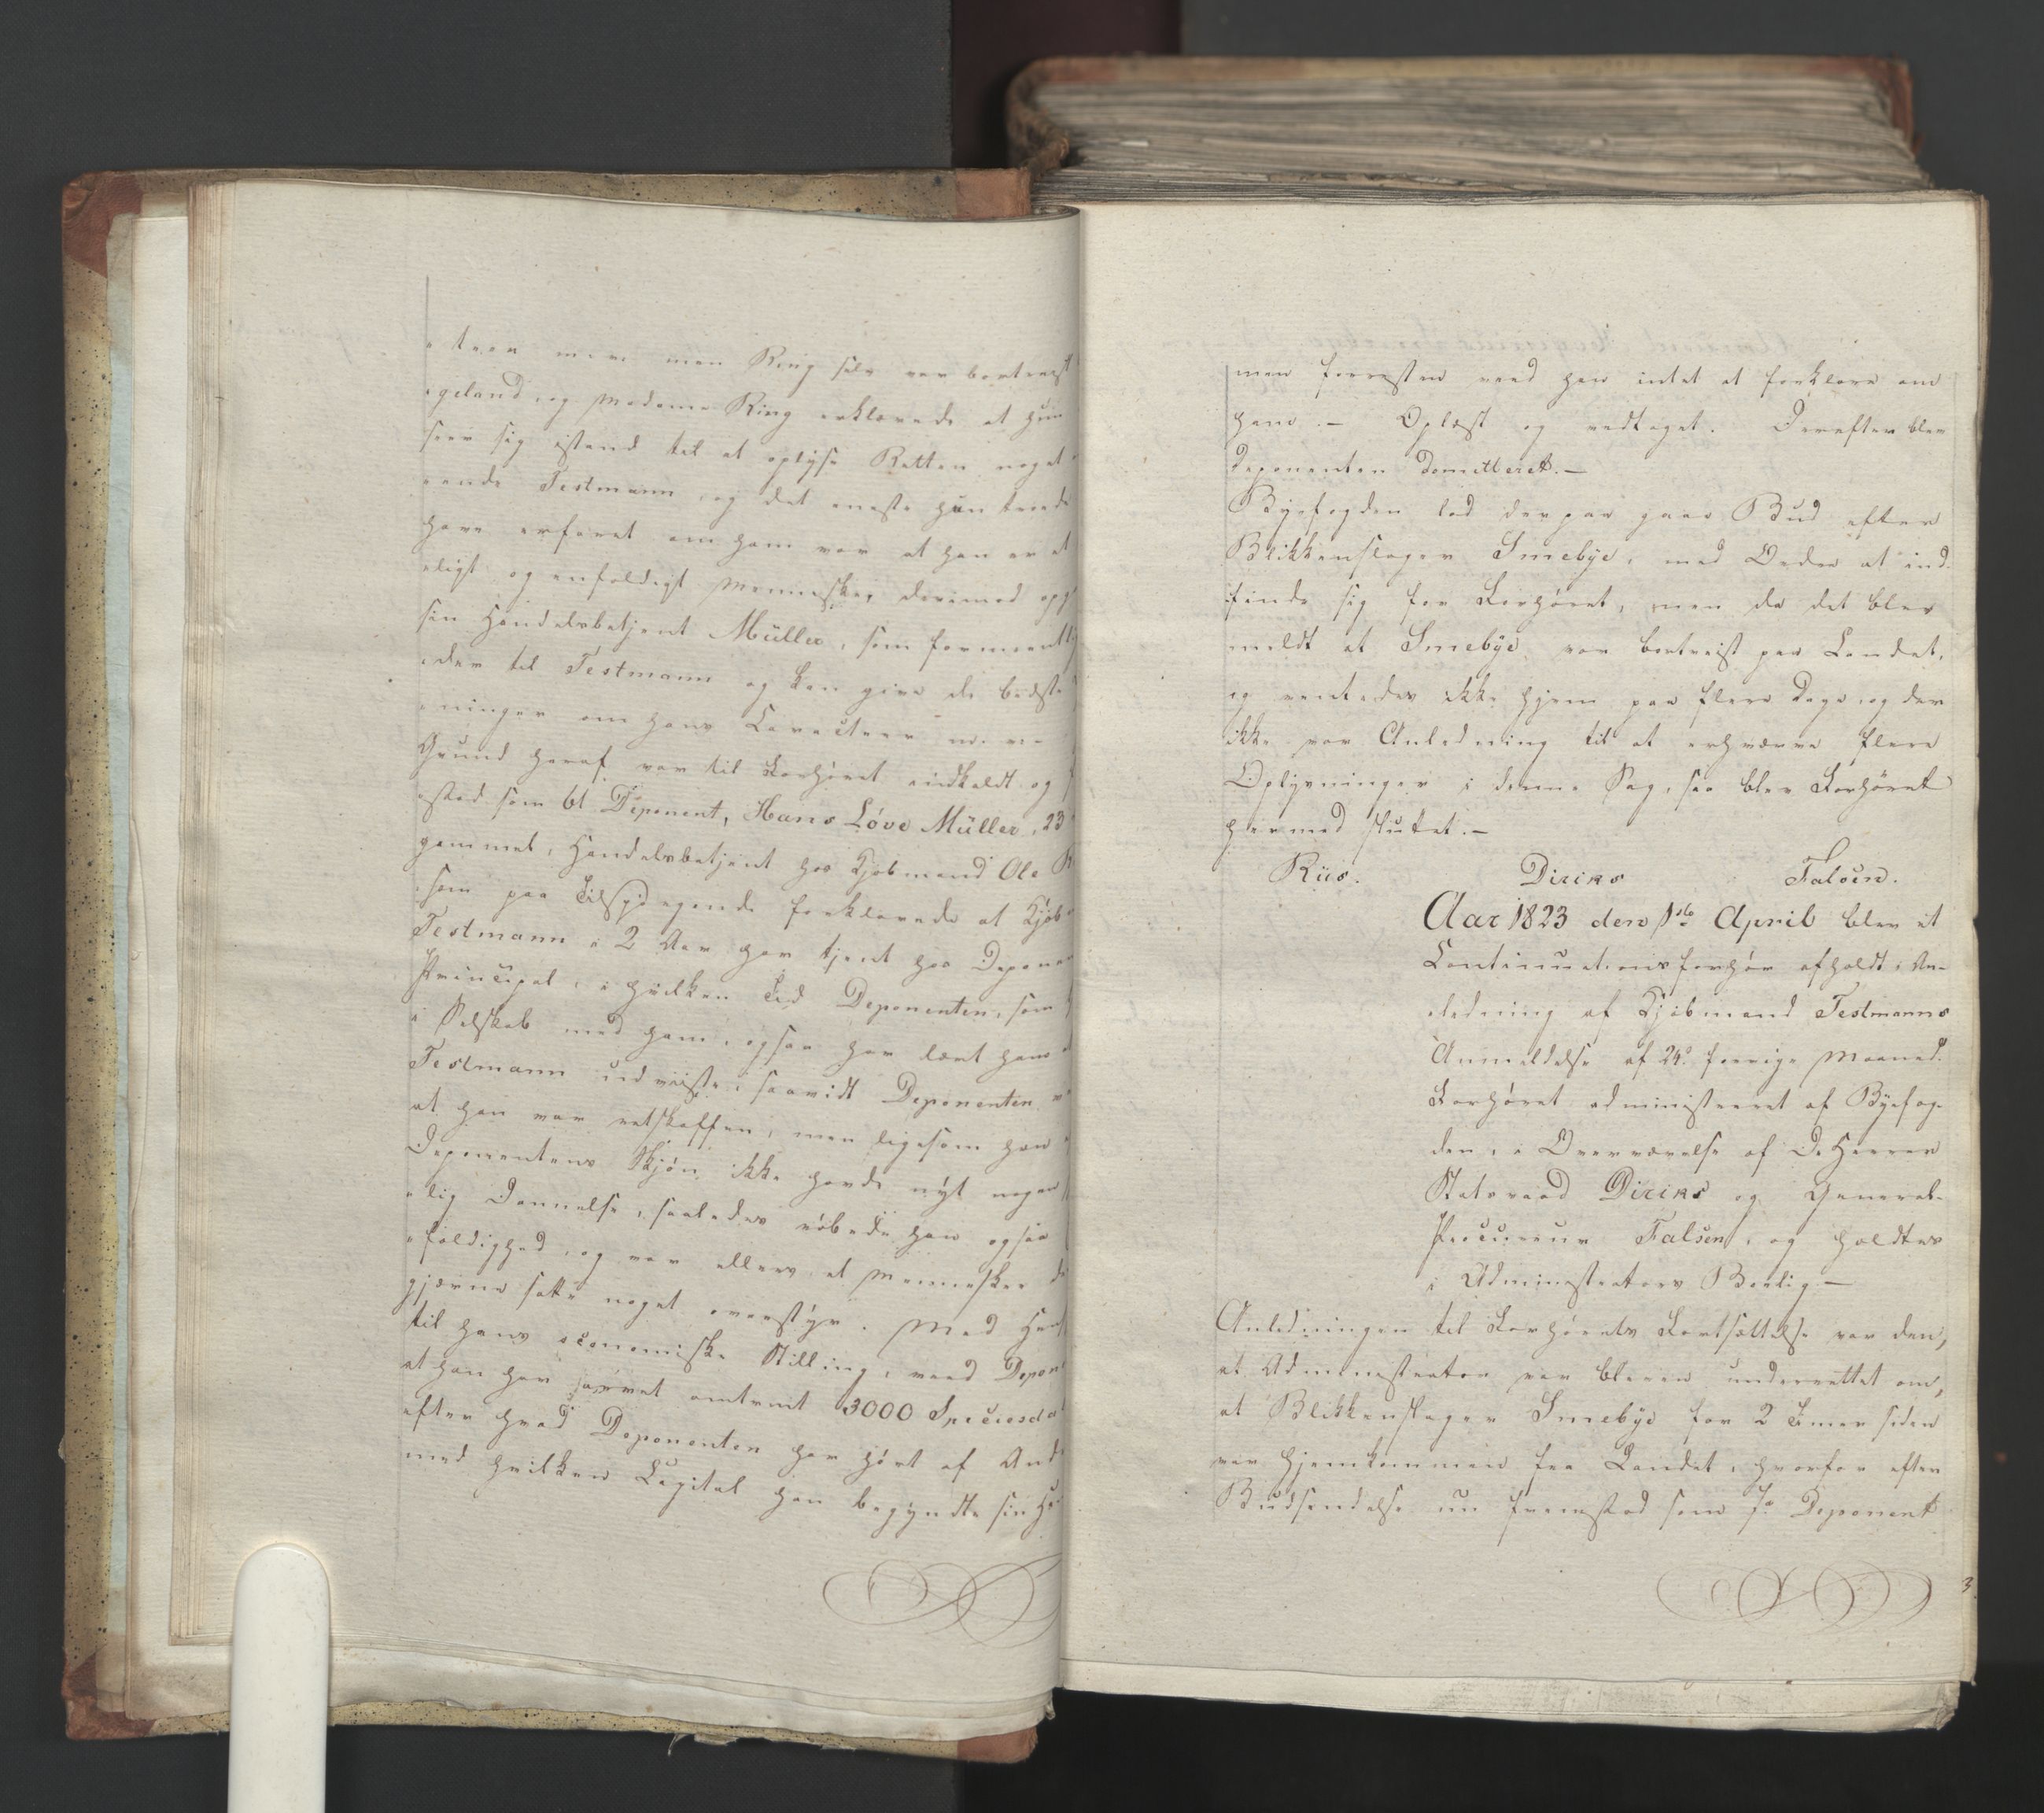 teer mere men Ring selv var bortreist
geland, og Madame Ring erklærede at hun
seer sig istand til at oplyse Retten noget
ende Testmann, og det eneste hun troede
have erfaret om ham var at han er et
ligt og enfoldigt Menneske, derimod opg
sin Handelsbetjent Müller, som formeentlig
der til Testmann og kan give de bedste
ninger om hans Caracteer
Grund heraf var til Forhøret indkaldt og
stod som 6t Deponent, Hans Løve Müller, 23
gammel, Handelsbetjent hos Kjøbmand Ole R
som paa Tilspørgende forklarede at Kjøb
Testmann i 2 Aar har tjent hos Deponen
Principal, i hvilken Tid Deponenten, som
i Selskab med ham, ogsaa har lært ham at
Testmann udviiste, saavidt Deponenten v
at han var retskaffen, men ligesom han
Deponentens Skjøn ikke havde nydt nogen
lig Dannelse, saaledes røbede han ogsaa
foldighed, og var ellers et Menneske d
gjærne satte noget overstyr. Med Hens
til hans oconomiske Stilling, veed Depon
at han har arvet omtrent 3000 Speciesda
efter hvad Deponenten har hørt af And
med hvilken Capital han begyndte sin Ha
men forresten veed han intet at forklare om
ham.- Oplæst og vedtaget. Derefter blev
Deponenten Demitteret.-
Byefogden lod derpaa gaae Bud efter
Blikkenslager Smebye, med Ordre at ind-
finde sig for Forhøret, men da det blev
meldt at Smebye var bortreist paa Landet,
og ventedes ikke hjem paa flere Dage, og der
ikke var Anledning til at erhverve flere
Oplysninger i denne Sag, saa blev Forhøret
hermed sluttet.-
Riis. Diriks Falsen.
Aar 1823 den 1ste April blev et
Continuationsforhør afholdt i An-
ledning af Kjøbmand Testmanns
Anmeldelse af 24de forrige Maaned.
Forhøret administreret af Byefog-
den, i Overværelse af De Herrer
Statsraad Diriks og General-
Procureur Falsen, og holdtes
i Administrators Boelig.-
Anledningen til Forhørets Fortsættelse var den,
at Administrator var bleven underrettet om,
at Blikkenslager Smebye for 2 Timer siden
var hjemkommen fra Landet, hvorfor efter
Budsendelse nu fremstod som 7de Deponent
3